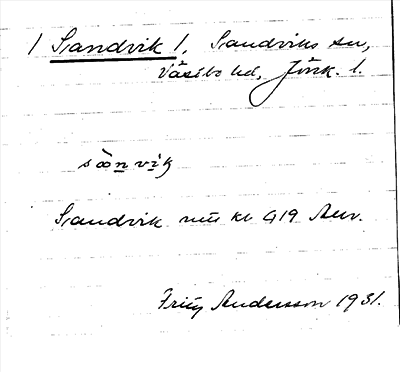 1 Sandvik 1. Sandviks sn,
Västbo hd, Jönk. l.
sànvik
Sandvik nu kl 419 Aur.
Fritz Andersson 1931.